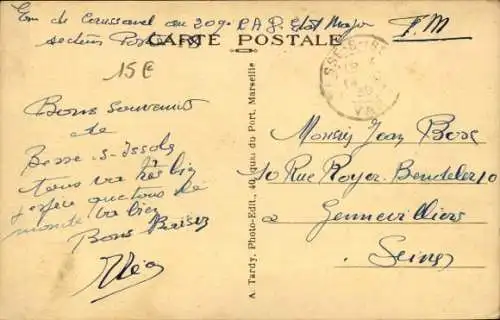 Em de Caussanel au 209e R A P Etat Major
secteur Postal
F.M
CARTE POSTALE
15€
Bons Souvenirs
de
Besse-s-Issole
tous va très bien
j'espère que tous le
monde va bien
Bons Baisers
BESSE-S-ISSOLE
VAR
A. Tardy, Photo-Edit., 40, Quai du Port, Marseille
Monsieur Jean Bosc
10 Rue Royer-Bendele 10
à Gennevilliers
Seine